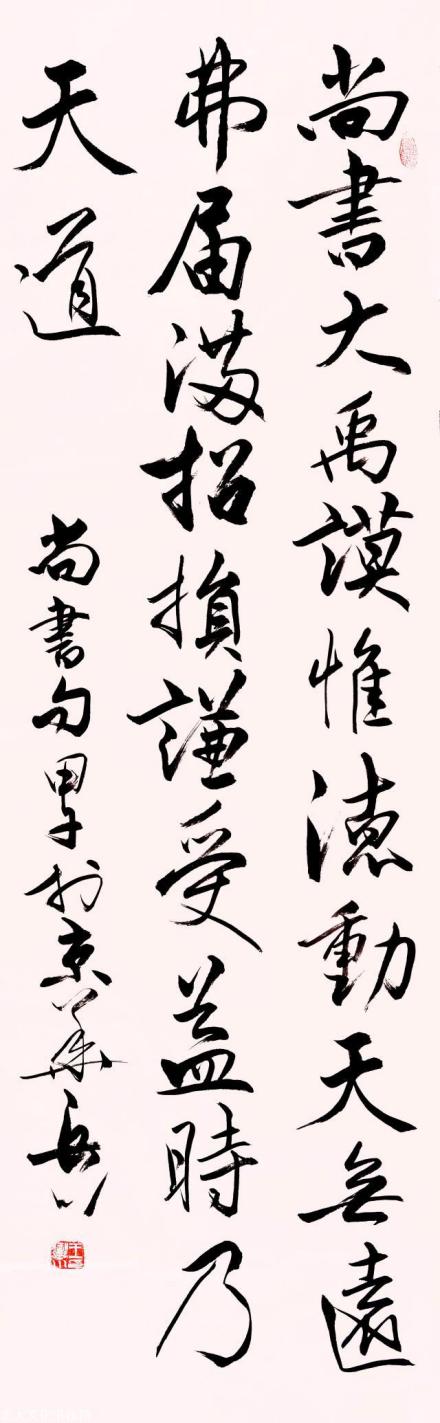 尚書大禹謨惟德動天無遠
弗届滿招損謙受益時乃
天道
尚書句 甲子於京華 岳川